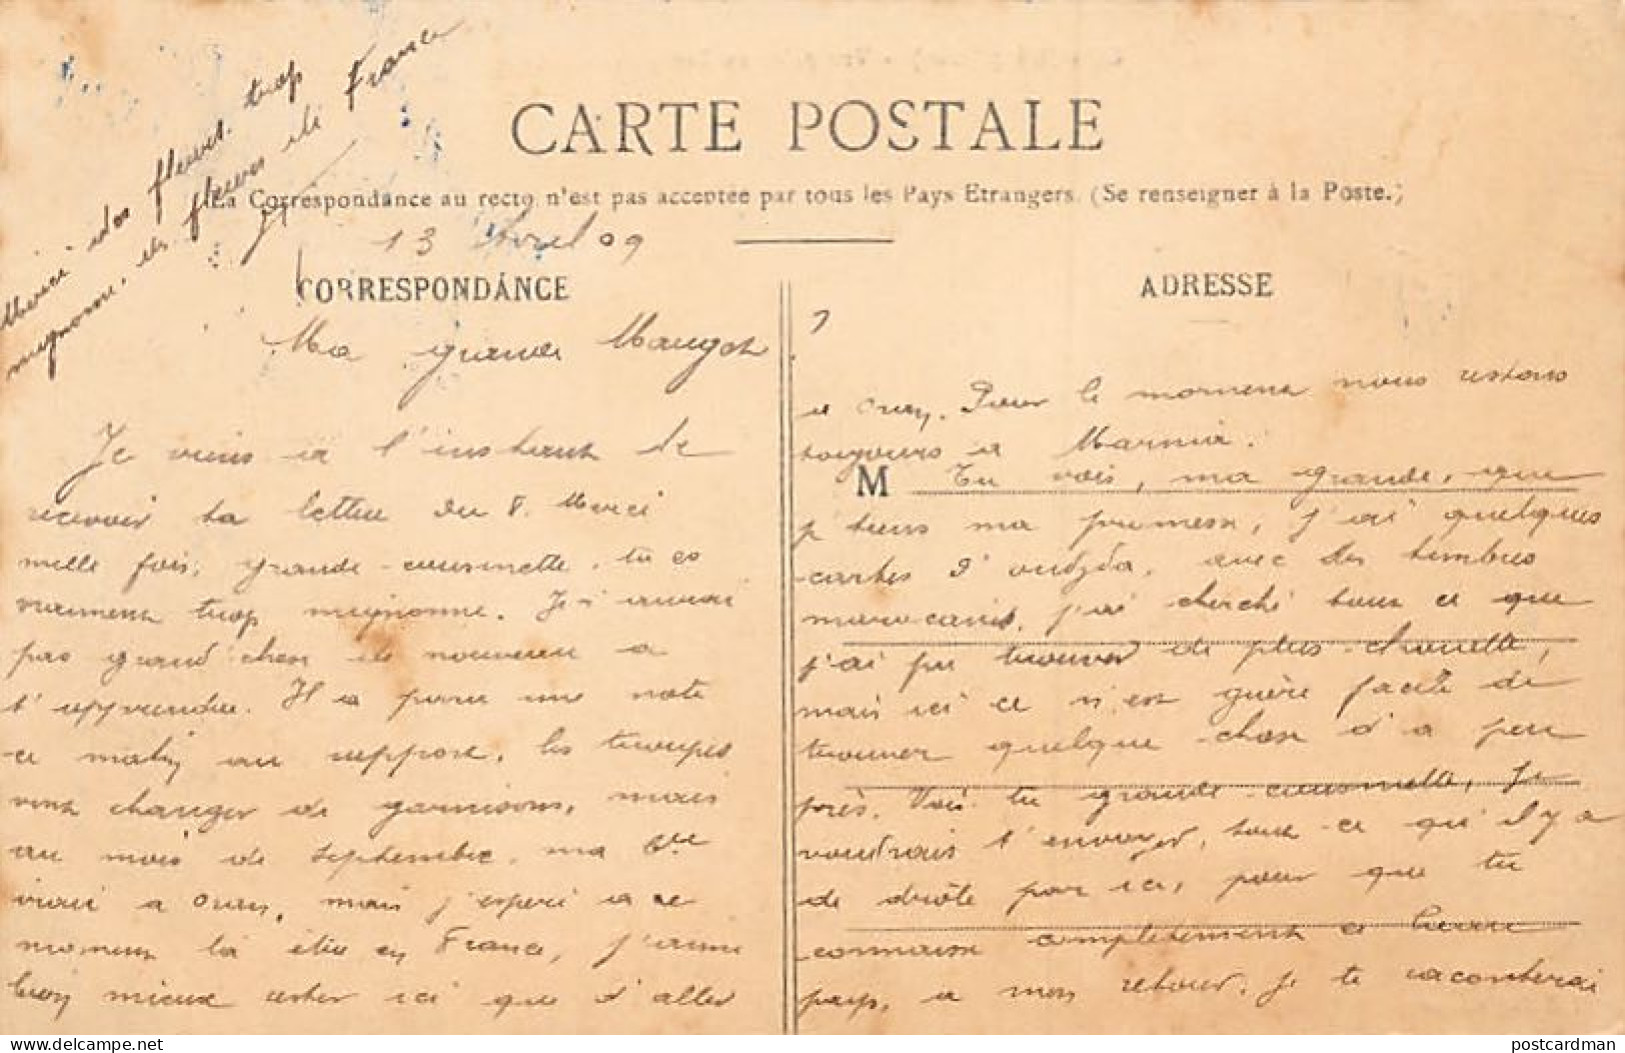 Merci des fleurs. trop
mignonne, ces fleurs de France
CARTE POSTALE
La Correspondance au recto n'est pas acceptée par tous les Pays Etrangers. (Se renseigner à la Poste.)
13 Avril 09
CORRESPONDANCE
Ma grande
Je viens à l'instant de
recevoir ta lettre du 8. Merci
mille fois, grande cousinette, tu es
vraiment trop mignonne. Je n'aurai
pas grand'chose de nouveau à
t'apprendre. Il a paru une note
ce matin au rapport, les troupes
vont changer de garnisons, mais
au mois de septembre. ma Cie
irai à Oran, mais j'espère à ce
moment là être en France, j'aime
bien mieux rester ici que d'aller
ADRESSE
à Oran. Pour le moment nous restons
toujours à Marnia.
M
Tu vois, ma grande, que
j'tiens ma promesse, j'ai quelques
cartes d'oudjda, avec des timbres
marocains. j'ai cherché tout ce que
j'ai pu trouver de plus chouette,
mais ici ce n'est guère facile de
trouver quelque chose d'à peu
près. Vois-tu grande cousinette, je
voudrais t'envoyer, tout ce qu'il y a
de drôle par ici, pour que tu
connaisse complètement ce
pays, à mon retour. je te raconterai
delcampe.net
postcardman